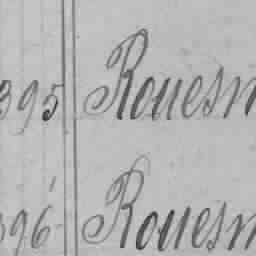 395 Rouesn
396 Rouesn